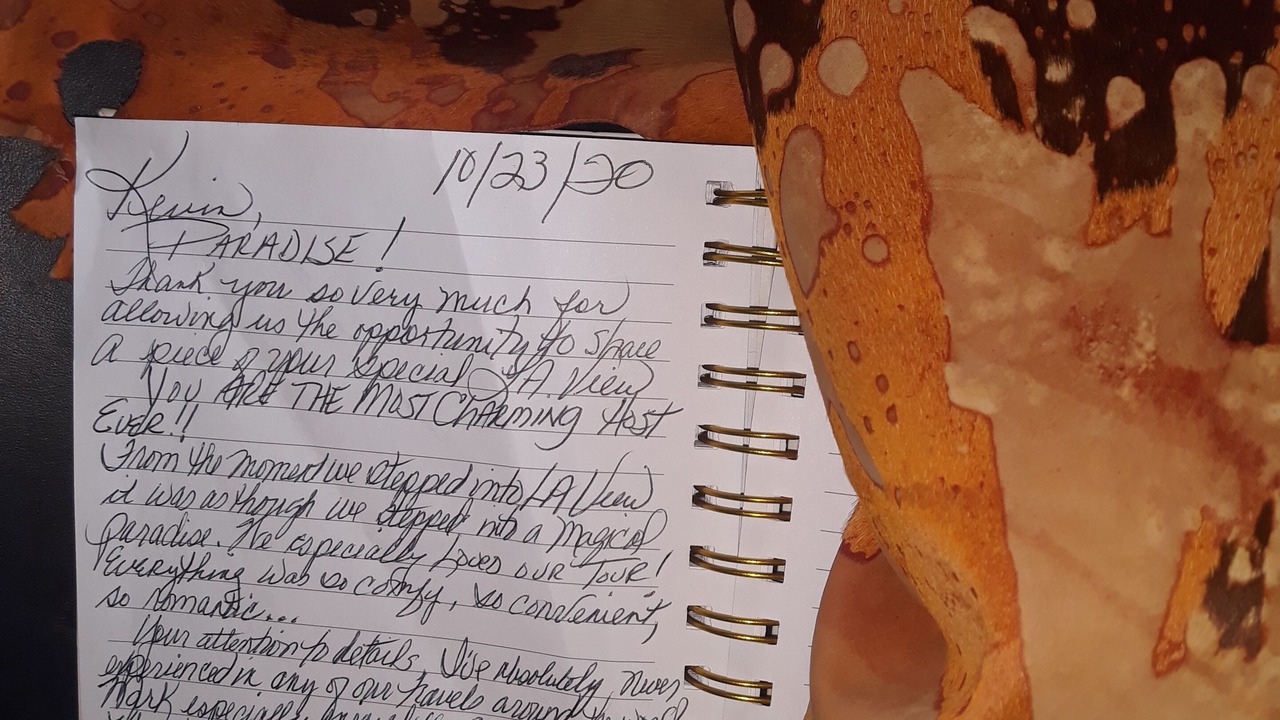 10/23/20
Kevin,
PARADISE!
Thank you so very much for
allowing us the opportunity to share
A piece of your special LA View
YOU ARE THE MOST CHARMING HOST
EVER!!
From the moment we stepped into LA View
it was as though we stepped into a magical
paradise. We especially loved OUR TOUR!
Everything was so comfy, so convenient,
so romantic...
Your attention to details, I've absolutely, never
experienced in any of our travels around the world
Mark especially